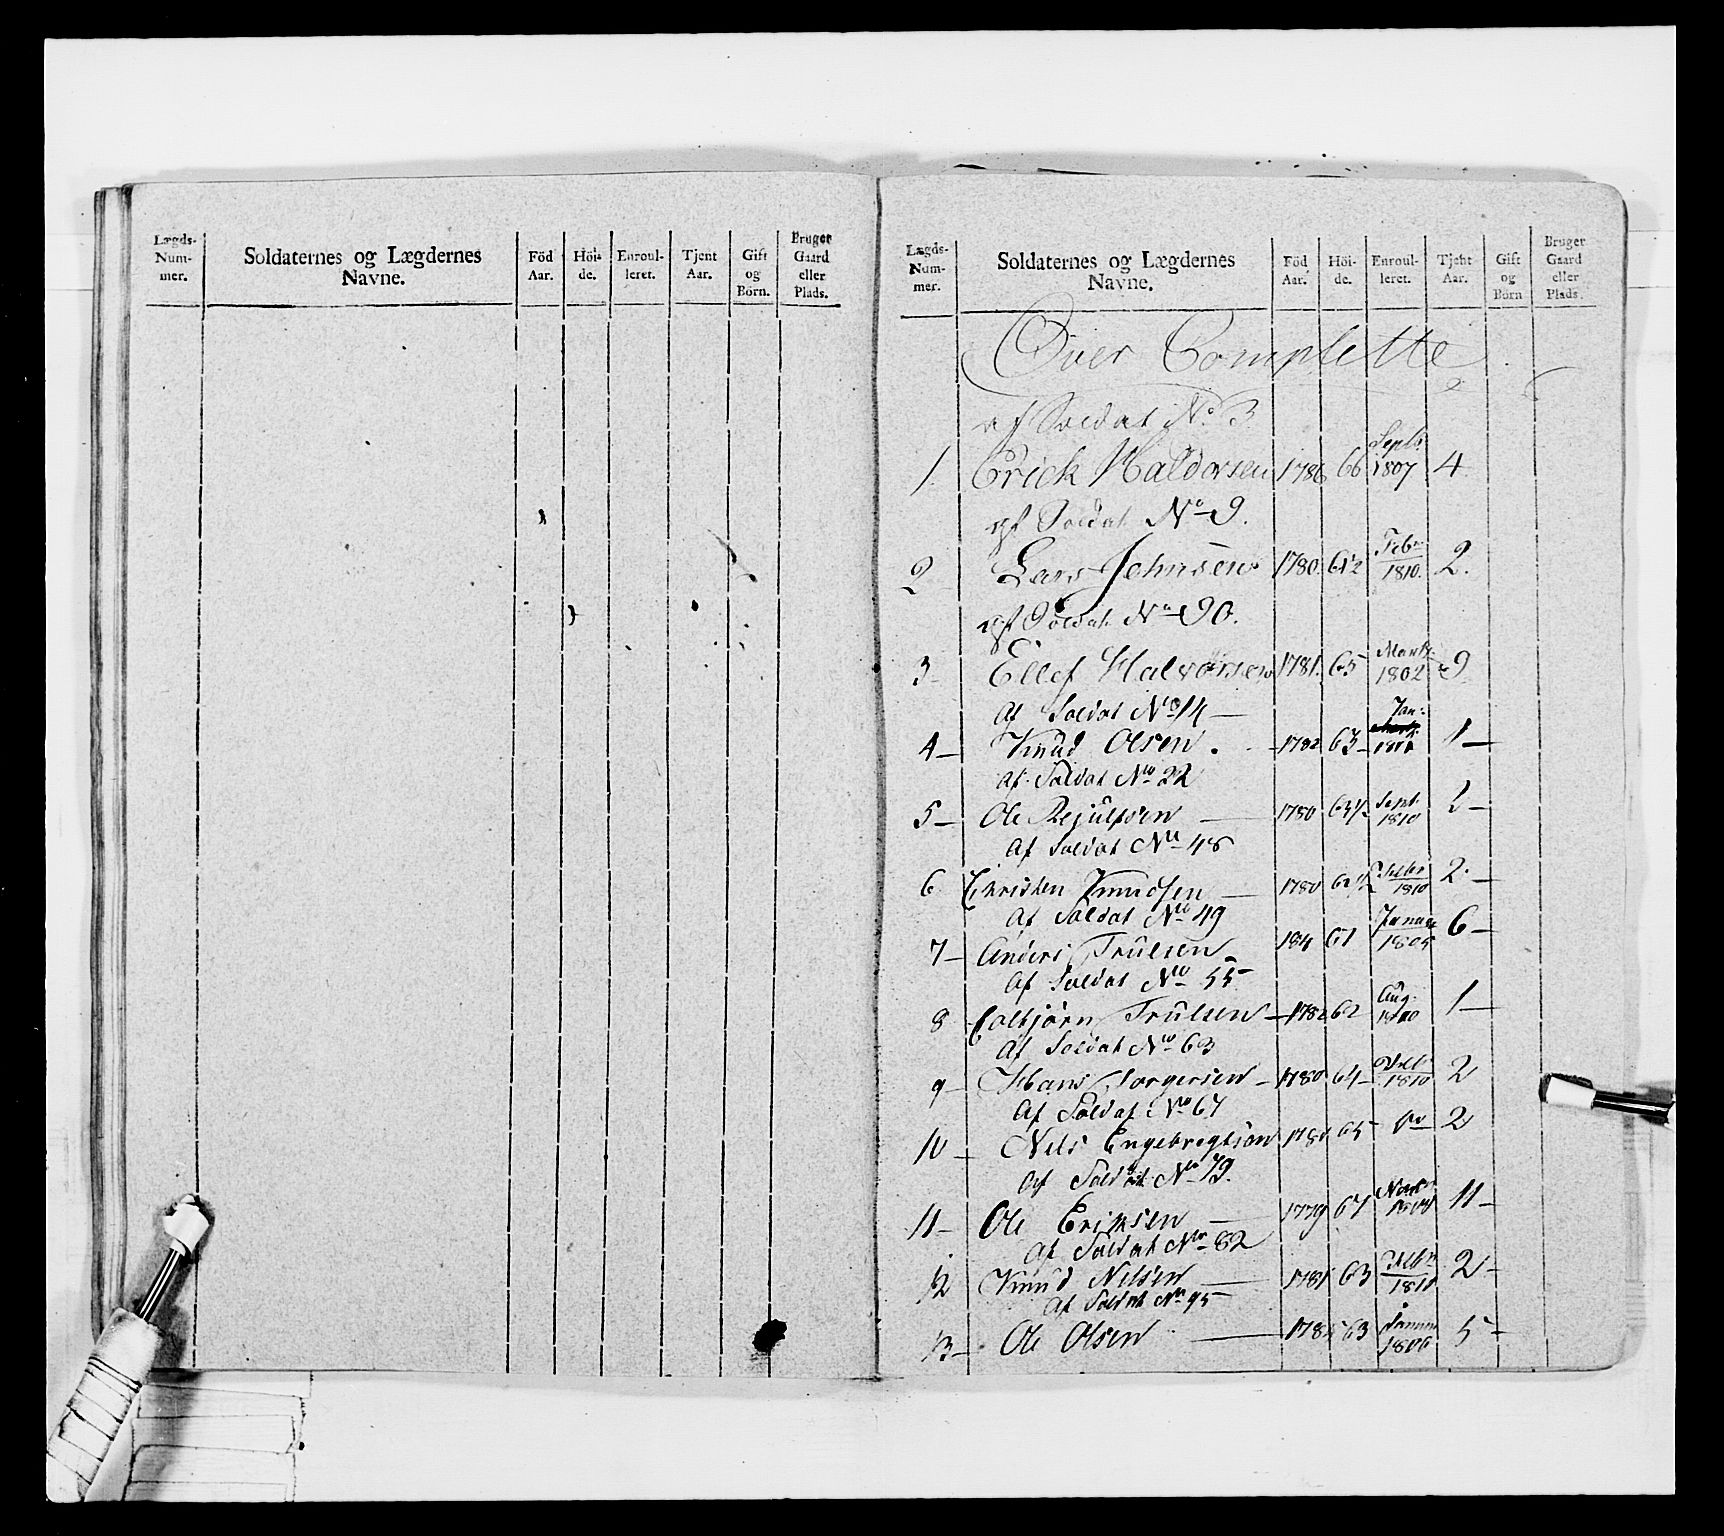 Lægds-Num-mer. Soldaternes og Lægdernes Navne. Föd Aar. Höi-de. Enroul-leret. Tjent Aar. Gift og Börn. Bruger Gaard eller Plads.
Lægds-Num-mer. Soldaternes og Lægdernes Navne. Föd Aar. Höi-de. Enroul-leret. Tjent Aar. Gift og Börn Bruger Gaard eller Plads.
Over Complette
af Soldat No 3
1. Erick Haldorsen 1786 66 Septb. 1807 4
af Soldat No 9.
2 Lars Johnsen 1780. 61½ Febr 1810. 2.
af Soldat No 90.
3 Ellef Halvorsen 1781. 65 Martz 1802 9
Af Soldat No 14
4 Knud Olsen. 1782 63 Jan: 1
Af Soldat No 22
5 Ole 1780 63½ Sept. 1810
Af Soldat No 48
6 Christen Knudsen 1780 Febr 1810 2.
Af Soldat No 49
7 Anders Trulsen 61 Januar 1805 6
Af Soldat No 55
8 Colbjörn Trulsen 62 Aug. 1
Af Soldat No 63
9 Hans Torgersen 1780 64 Febr 1810 2
Af Soldat No 67
10 Nils Engebregtsen 65 2
Af Soldat No 79.
11 Ole Eriksen 1779 67 11
Af Soldat No 82
12 Knud Nilsen 63 Febr 1810 2
Af Soldat No 95
13 Ole Olsen 63 1806 5